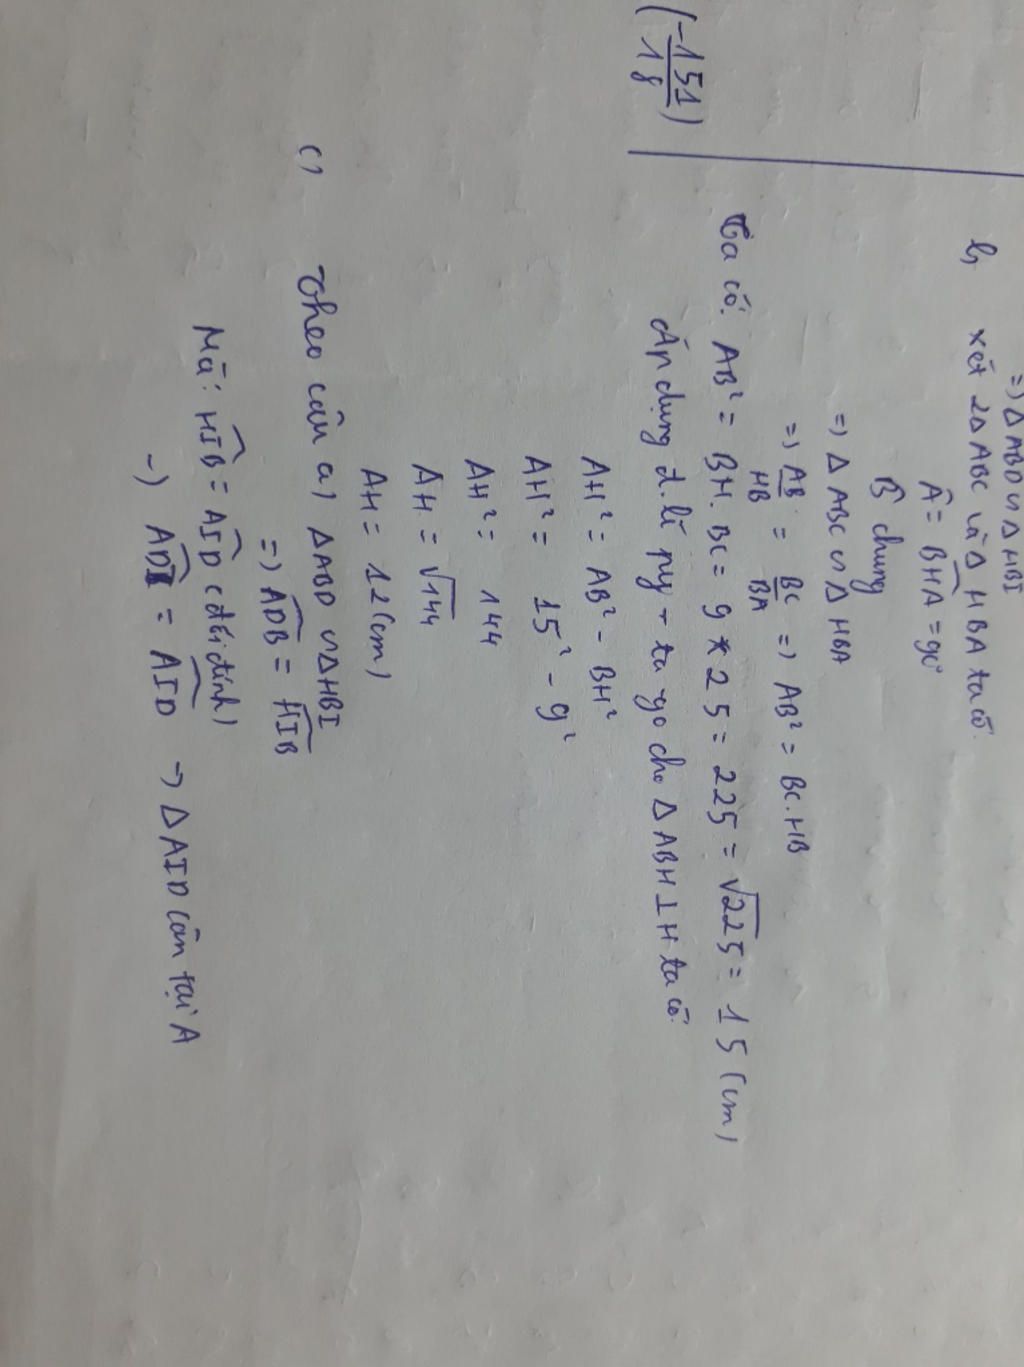 (-151/18)
=) Δ ABD ᔕ Δ HBI
b, xét 2Δ ABC và Δ HBA ta có.
Â = BĤA = 90°
B̂ chung
=) Δ ABC ᔕ Δ HBA
=) AB/HB = BC/BA =) AB² = BC.HB
Ta có: AB² = BH.BC = 9 * 25 = 225 = √225 = 15 (cm)
Áp dụng đ.lí py-ta-go cho Δ ABH ⊥ H ta có:
AH² = AB² - BH²
AH² = 15² - 9²
AH² = 144
AH = √144
AH = 12 (cm)
c) Theo câu a) ΔABD ᔕ ΔHBI
=) AD̂B = HÎB
Mà: HÎB = AÎD (đối đỉnh)
-) AD̂I = AÎD -) Δ AID cân tại A